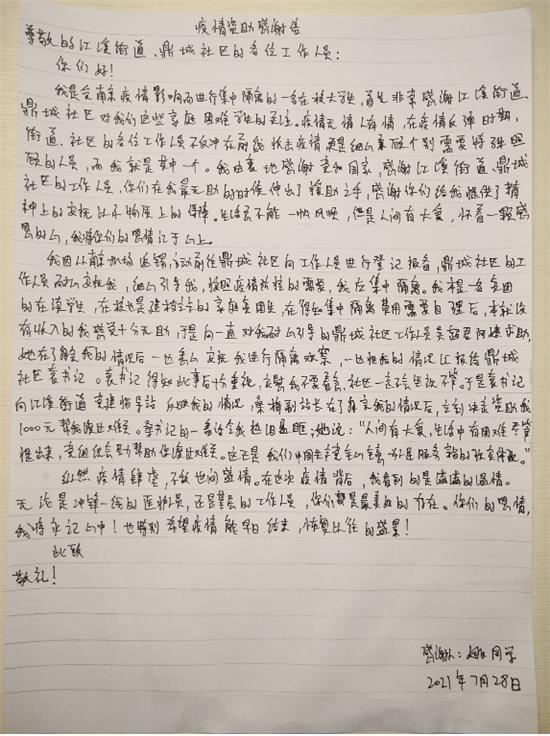 疫情资助感谢信
尊敬的江溪街道、鼎城社区的各位工作人员：
你们好！
我是受南京疫情影响而进行集中隔离的一名在校大学生，首先非常感谢江溪街道、
鼎城社区对我们这些家庭困难学生的关注。疫情无情人有情，在疫情反弹时期，
街道、社区的各位工作人员不仅冲在前线抗击疫情更是细心兼顾个别需要特殊照
顾的人员，而我就是其中一个。我由衷地感谢党和国家，感谢江溪街道、鼎城
社区的工作人员，你们在我最无助的时候伸出了援助之手，感谢你们给我提供了精
神上的安抚以及物质上的保障。生活不可能一帆风顺，但是人间有大爱，怀着一颗感
恩的心，我将你们的恩情记于心上。
我因从南京机场返锡，主动前往鼎城社区向工作人员进行登记报备，鼎城社区的工
作人员耐心安抚我，细心引导我，按照疫情防控的需要，我应集中隔离。我本是一名贫困
的在读学生，在校也是建档立卡的家庭贫困生，在得知集中隔离费用需要自理后，本就没
有收入的我感受十分无助，于是向一直对我耐心引导的鼎城社区工作人员吴 阿姨求助，
她在了解我的情况后一边耐心安抚我进行隔离观察，一边把我的情况汇报给鼎城
社区袁书记。袁书记得知此事后十分重视，安慰我不要着急，社区一定不会坐视不管。于是袁书记
向江溪街道党建指导站反映我的情况，桑梅副站长在了解完我的情况后，立刻决定资助我
1000元帮我渡过难关。桑书记的一番话令我热泪盈眶；她说：“人间有大爱，生活中有困难尽管
提出来，党组织会尽力帮助你渡过难关。这正是我们中国共产党
纵然疫情肆虐，不敌世间盛情。在这次疫情背后，我看到的是满满的温情。
无论是冲锋一线的医护人员，还是基层的工作人员，你们都是最美好的存在。你们的恩情，
我将永记心中！也特别希望疫情能早日结束，恢复以往的盛景！
此致
敬礼！
感谢人：姚同学
2021年7月28日